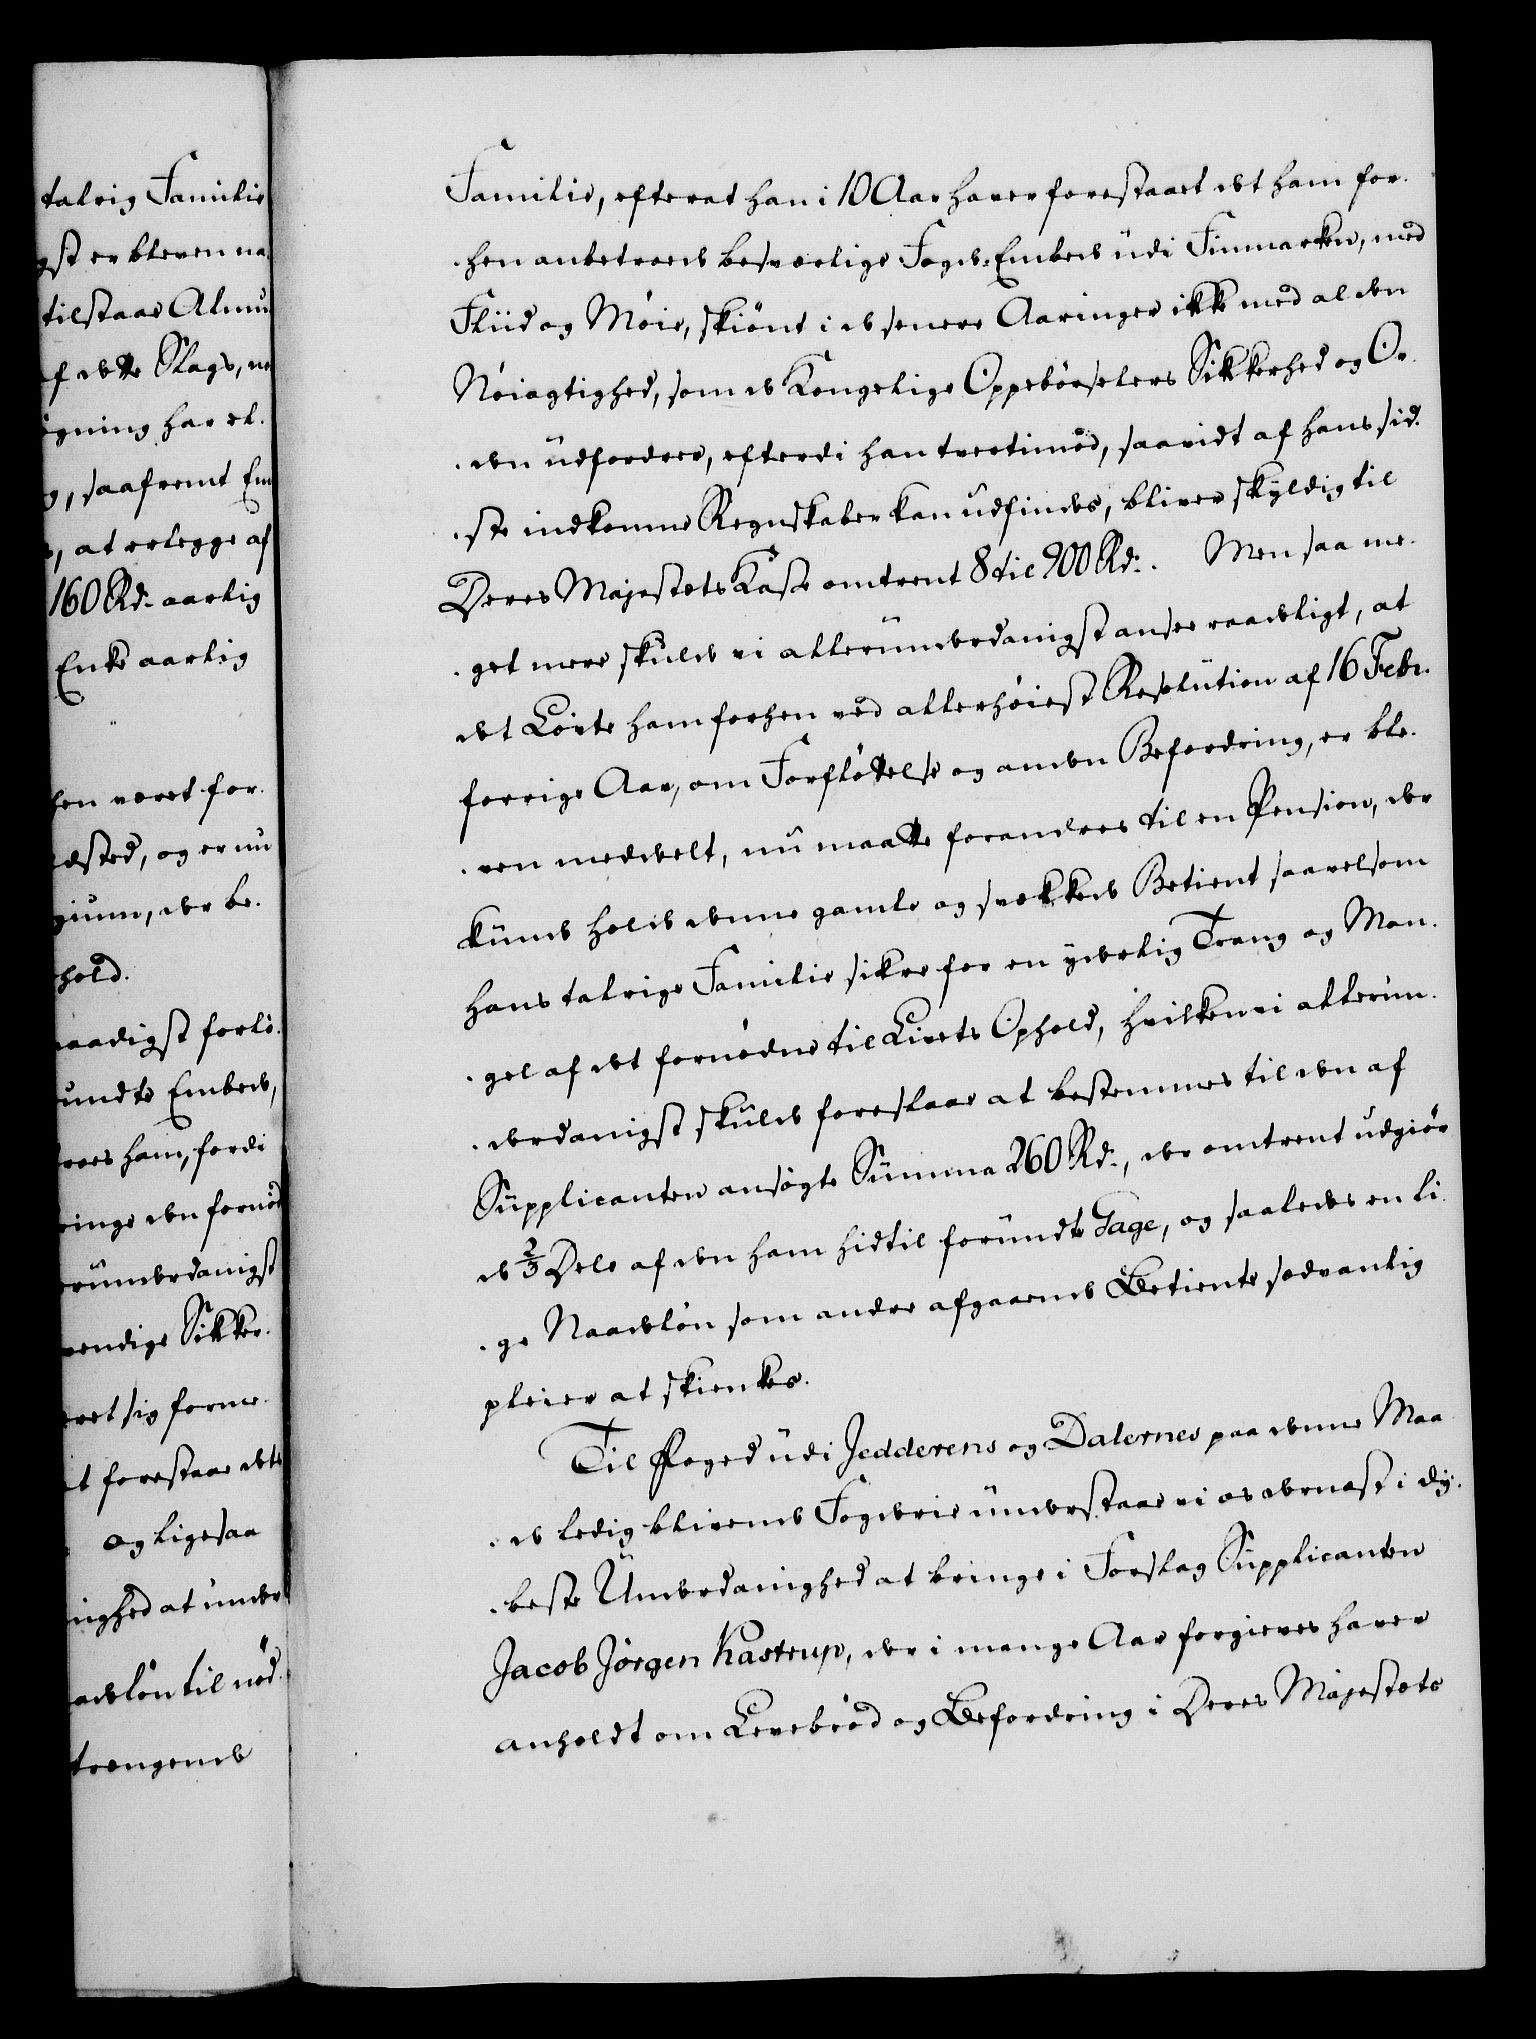 talrig Familie
gst er bleven na
tilstaae Almu
f dette Slags, ne
gning har el.
g, saafremt Em
, at erlegge af
160 Rd. aarlig
Enke aarlig
hen veret for
dsted, og er nu
gium, der be.
hold.
aadigst forlö.
undte Embede,
roes ham, fordi
ringe den fornöd
rünnderdanigst
vendige Sikker.
eret sig forme
t forestaae dets
og ligesaa
nighed at under
adelön til nöd
trængende
Familie, efterat han i 10 Aar haver forestaaet det ham for.
.hen anbetroede besværlige Fogd-Embede udi Finmarken, med
Fliid og Möie, skiönt i de senere Aaringer ikke med al den
Nöiagtighed, som de Kongelige Oppebörselers Sikkerhed og Or.
.den udfordrer, efterdi han tvertimod, saavidt af hans sid.
.ste indkomne Regnskaber kan udfindes, bliver skyldig til
Deres Majestets Kasse omtrent 8 til 900 Rd. Men saa me.
.get mere skulde vi allerunderdanigst ansee raadeligt, at
det Löfte ham forhen ved allerhöieste Resolution af 16 Febr.
forrige Aar, om Forflöttelse og anden Befordring, er ble.
.ven meddeelt, nu maatte forandres til en Pension, der
kunde holde denne gamle og svækkede Betient saavelsom
hans talrige Familie sikre for en ynkelig Trang og Man.
.gel af det fornödne til Livets Ophold, hvilken vi allerun.
.derdanigst skulde foreslaae at bestemmes til den af
Supplicanten ansögte Summa 260 Rd., der omtrent udgiör
de 2/3 Dele af den ham hidtil forundte Gage, og saaledes en li.
.ge Naadelön som andre afgaaende Betiente sædvanlig
pleier at skienkes.
Til Foged udi Jedderens og Dalernes paa denne Maa
.de ledig blivende Fogderie understaae vi os dernæst i dy.
.beste Underdanighed at bringe i Forslag Supplicanten
Jacob Jörgen Kastrup, der i mange Aar forgieves haver
anholdt om Levebröd og Befordring i Deres Majestets